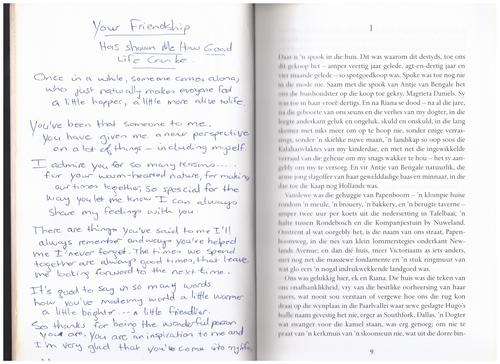 Your Friendship
Has shown Me How Good
Life Can be.
Once in a while, someone comes along,
who just naturally makes everyone feel
a little happier, a little more alive to life.
You've been that someone to me.
You have given me a new perspective
on a lot of things – including myself.
I admire you for so many reasons....
for your warm-hearted nature, for making
our times together so special for the
way you let me know I can always
share my feelings with you.
There are things you've said to me I'll
always remember and ways you've helped
me I'll never forget. The times we spend
together are always good times, that leave
me looking forward to the next time.
It's good to say in so many words
how you've made my world a little warmer
a little brighter... a little friendlier.
So thanks for being the wonderful person
you are. You are an inspiration to me and
I'm very glad that you've come into my life.
1
Daar is 'n spook in die huis. Dit was waarom dit destyds, toe ons
dit gekoop het – amper veertig jaar gelede, agt-en-dertig jaar en
vier maande gelede – so spotgoedkoop was. Spoke was toe nog nie
in die mode nie. Saam met die spook van Antje van Bengale het
ons die huishoudster op die koop toe gekry. Magrieta Daniels. Sy
was toe in haar vroeë dertigs. En na Riana se dood – na al die jare,
na die geboorte van ons seuns en die verlies van my dogter, in die
leegte anderkant geluk en ongeluk, skuld en onskuld, in die lang
skemer met niks meer om op te hoop nie, sonder enige verras-
sings, sonder 'n sieklike nuwe maan, 'n landskap so oop soos die
Kalahari-vlaktes van my kinderdae, en met net die ingewikkelde
verraad van die geheue om my snags wakker te hou – het sy aan-
gebly om my te versorg. En vir Antje van Bengale natuurlik, die
arme jong slagoffer van haar gewelddadige baas en minnaar, in die
dae toe die Kaap nog Holland was.
Vandewe was die gehuggie van Papenboom – 'n klompie huise
rondom 'n meule, 'n brouery, 'n bakkery, en 'n berugte taverne –
amper twee uur per koets uit die nedersetting in Tafelbaai; 'n
halte tussen Rondebosch en die Kompanjiestuin by Nuweland.
Omtrent al wat oorgebly het, is die naam van ons straat, Papen-
boomweg, in die nes van klein lommersteegies onderkant New-
lands Avenue; en dan die huis, meer Victoriaans as iets anders,
met nog net die massiewe fondamente en 'n stuk ringmuur van
wat glo eers 'n nogal indrukwekkende landgoed was.
Ons was gelukkig hier, ek en Riana. Die huis was die teken van
ons onafhanklikheid, vry van die bestiering oorheersing van haar
ouers, wat nooit sou verstaan of vergewe hoe ons die rug kon
draai op die wenplaas in die Paarlvallei waar sewe geslagte Hugo's
balle naam gevestig het nie, erger as Southfork, Dallas. 'n Dogter
wat stranger voor die kamel staan, was erg genoeg; om nie te
praat van 'n kerkmuis van 'n skoonseun nie, wat uit die dor, dorre
9